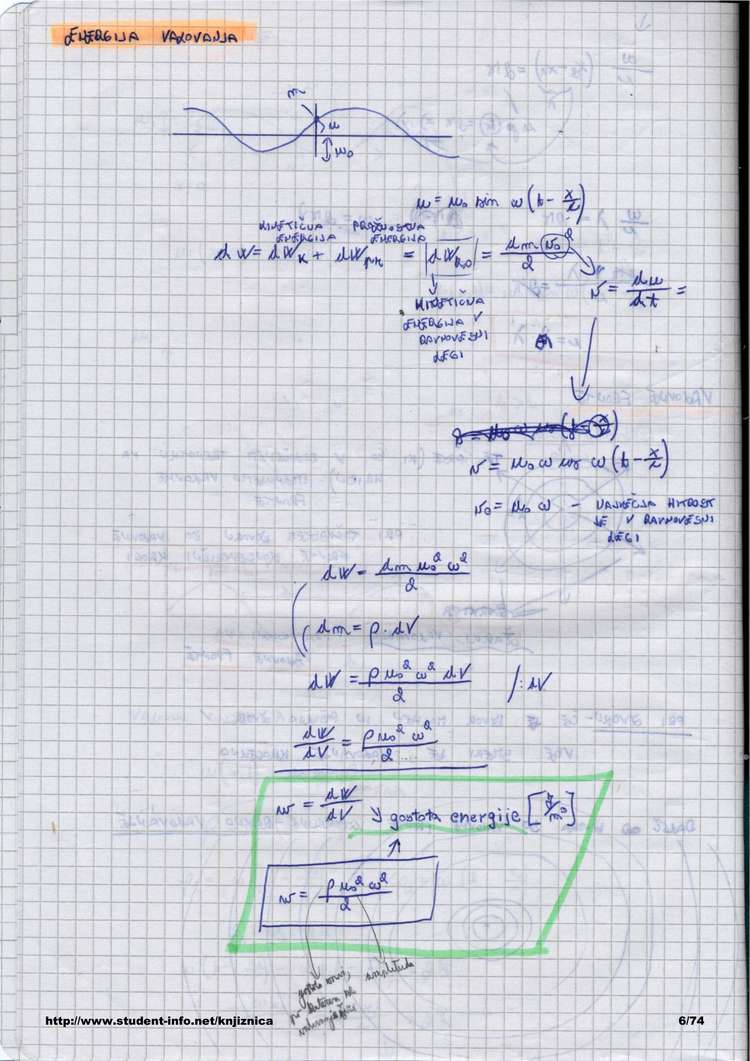 ENERGIJA VALOVANJA
m
u
u₀
u = u₀ sin ω (t - x/c)
KINETIČNA ENERGIJA PROŽNOSTNA ENERGIJA
dW = dWk + dWpr = |dWk0| = dm v₀²/2
v = du/dt =
KINETIČNA
ENERGIJA V
RAVNOVESNI
LEGI
v = u₀ ω cos ω (t - x/c)
v₀ = u₀ ω - NAJVEČJA HITROST
JE V RAVNOVESNI
LEGI
dW = dm u₀² ω²/2
dm = ρ · dV
dW = ρ u₀² ω² dV/2 /: dV
dW/dV = ρ u₀² ω²/2
w = dW/dV → gostota energije [J/m³]
w = ρ u₀² ω²/2
gostota snovi, amplituda
po kateri se
http://www.student-info.net/knjiznica 6/74